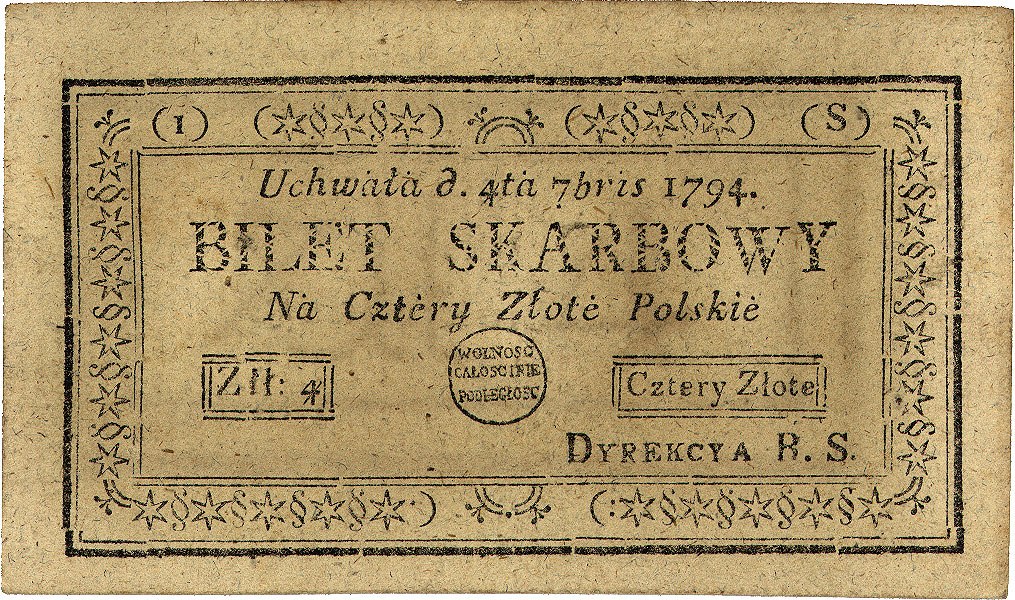 (1) (S)
Uchwała d. 4ta 7bris 1794.
BILET SKARBOWY
Na Cztėry Złotė Polskiė
Złł: 4
WOLNOSC
CAŁOSC INIE
PODLEGŁOSC
Cztery Złote
DYREKCYA B. S.